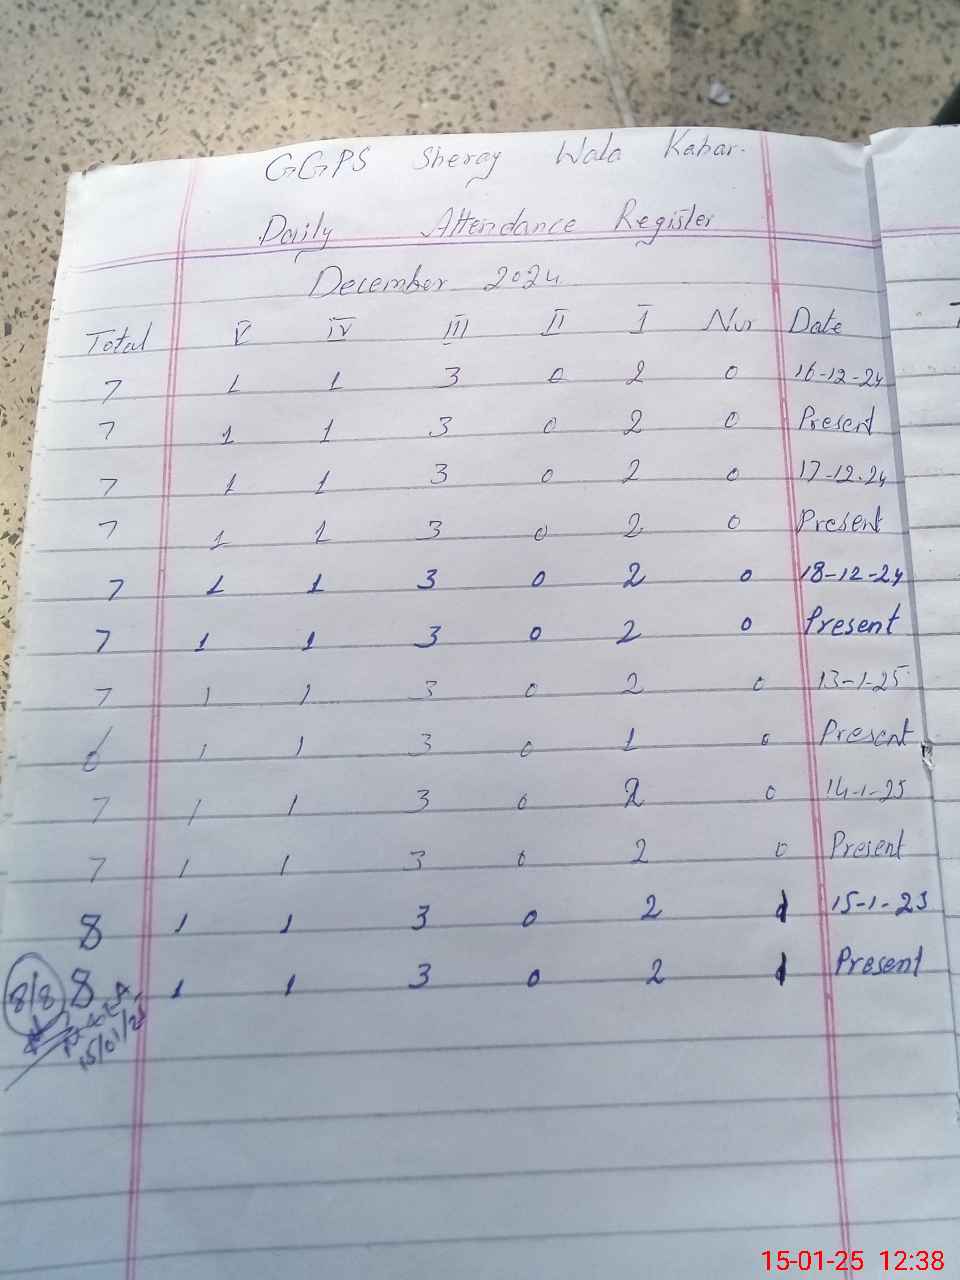 GGPS Sheray Wala Kahar.
Daily Attendance Register
December 2024
Total V IV III II I Nur Date
7 1 1 3 0 2 0 16-12-24
7 1 1 3 0 2 0 Present
7 1 1 3 0 2 0 17-12-24
7 1 1 3 0 2 0 Present
7 1 1 3 0 2 0 18-12-24
7 1 1 3 0 2 0 Present
7 1 1 3 0 2 0 13-1-25
6 1 1 3 0 1 0 Present
7 1 1 3 0 2 0 14-1-25
7 1 1 3 0 2 0 Present
8 1 1 3 0 2 1 15-1-25
8/8 8 1 1 3 0 2 1 Present
15/01/25
15-01-25 12:38